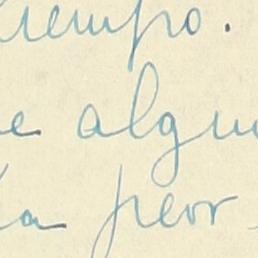 tiempo.
e algu
la peor